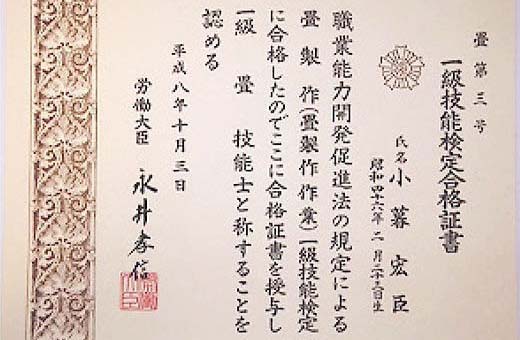 畳第三号
一級技能検定合格証書
氏名 小暮宏臣
昭和四十六年二月二十三日生
職業能力開発促進法の規定による
畳製作(畳製作作業)一級技能検定
に合格したのでここに合格証書を授与し
一級 畳 技能士と称することを
認める
平成八年十月三日
労働大臣 永井孝信